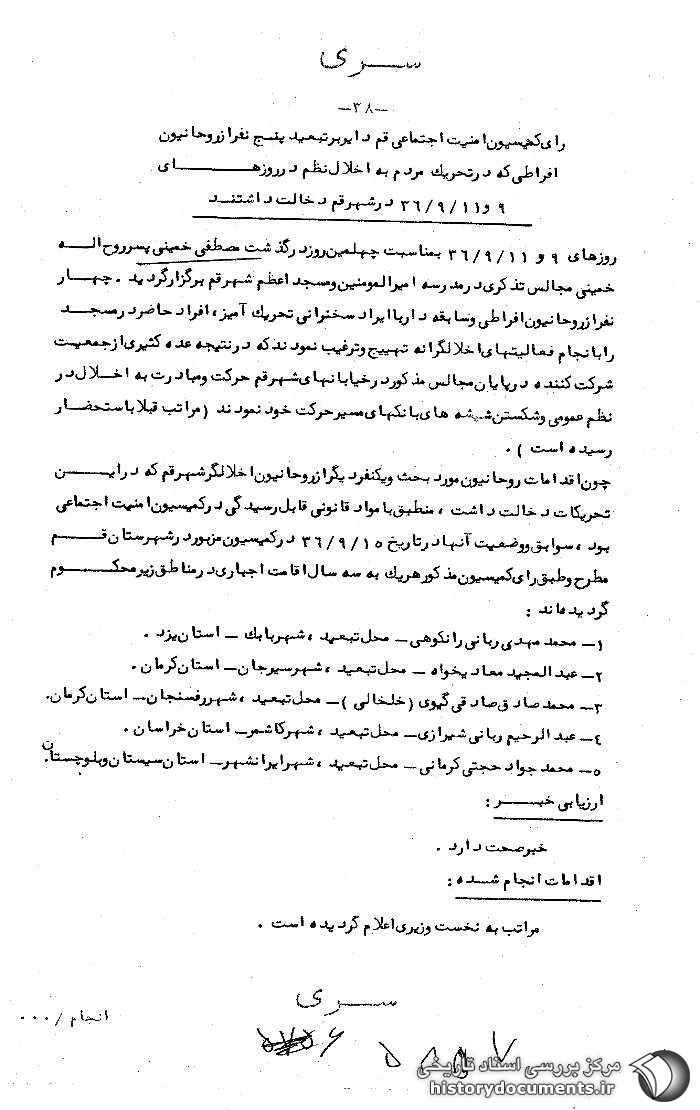 سری
-۳۸-
رای کمیسیون امنیت اجتماعی قم دایر بر تبعید پنج نفر از روحانیون
افراطی که در تحریک مردم به اخلال نظم در روزهای
۹ و ۳۶/۹/۱۱ در شهر قم دخالت داشتند
روزهای ۹ و ۳۶/۹/۱۱ بمناسبت چهلمین روز درگذشت مصطفی خمینی پسر روح اله
خمینی مجالس تذکری در مدرسه امیرالمومنین و مسجد اعظم شهر قم برگزار گردید . چهار
نفر از روحانیون افراطی و سابقه دار با ایراد سخنرانی تحریک آمیز ، افراد حاضر در مسجد
را با انجام فعالیتهای اخلالگرانه تهییج و ترغیب نمودند که در نتیجه عده کثیری از جمعیت
شرکت کننده در پایان مجالس مذکور در خیابانهای شهر قم حرکت و مبادرت به اخلال در
نظم عمومی و شکستن شیشه های بانکهای مسیر حرکت خود نمودند ( مراتب قبلا باستحضار
رسیده است ) .
چون اقدامات روحانیون مورد بحث و یکنفر دیگر از روحانیون اخلالگر شهر قم که در این
تحریکات دخالت داشت ، منطبق با مواد قانونی قابل رسیدگی در کمیسیون امنیت اجتماعی
بود ، سوابق و وضعیت آنها در تاریخ ۳۶/۹/۱۵ در کمیسیون مزبور در شهرستان قم
مطرح و طبق رای کمیسیون مذکور هر یک به سه سال اقامت اجباری در مناطق زیر محکوم
گردیده‌اند :
۱- محمد مهدی ربانی رانکوهی - محل تبعید ، شهر بابک - استان یزد .
۲- عبدالمجید معادیخواه - محل تبعید ، شهر سیرجان - استان کرمان .
۳- محمد صادق صادقی گیوی ( خلخالی ) - محل تبعید ، شهر رفسنجان - استان کرمان.
۴- عبدالرحیم ربانی شیرازی - محل تبعید ، شهر کاشمر - استان خراسان .
۵- محمد جواد حجتی کرمانی - محل تبعید ، شهر ایرانشهر - استان سیستان و بلوچستان.
ارزیابی خبر :
خبر صحت دارد .
اقدامات انجام شده :
مراتب به نخست وزیری اعلام گردیده است .
سری
انجام /۰۰۰
مرکز بررسی اسناد تاریخی
historydocuments.ir